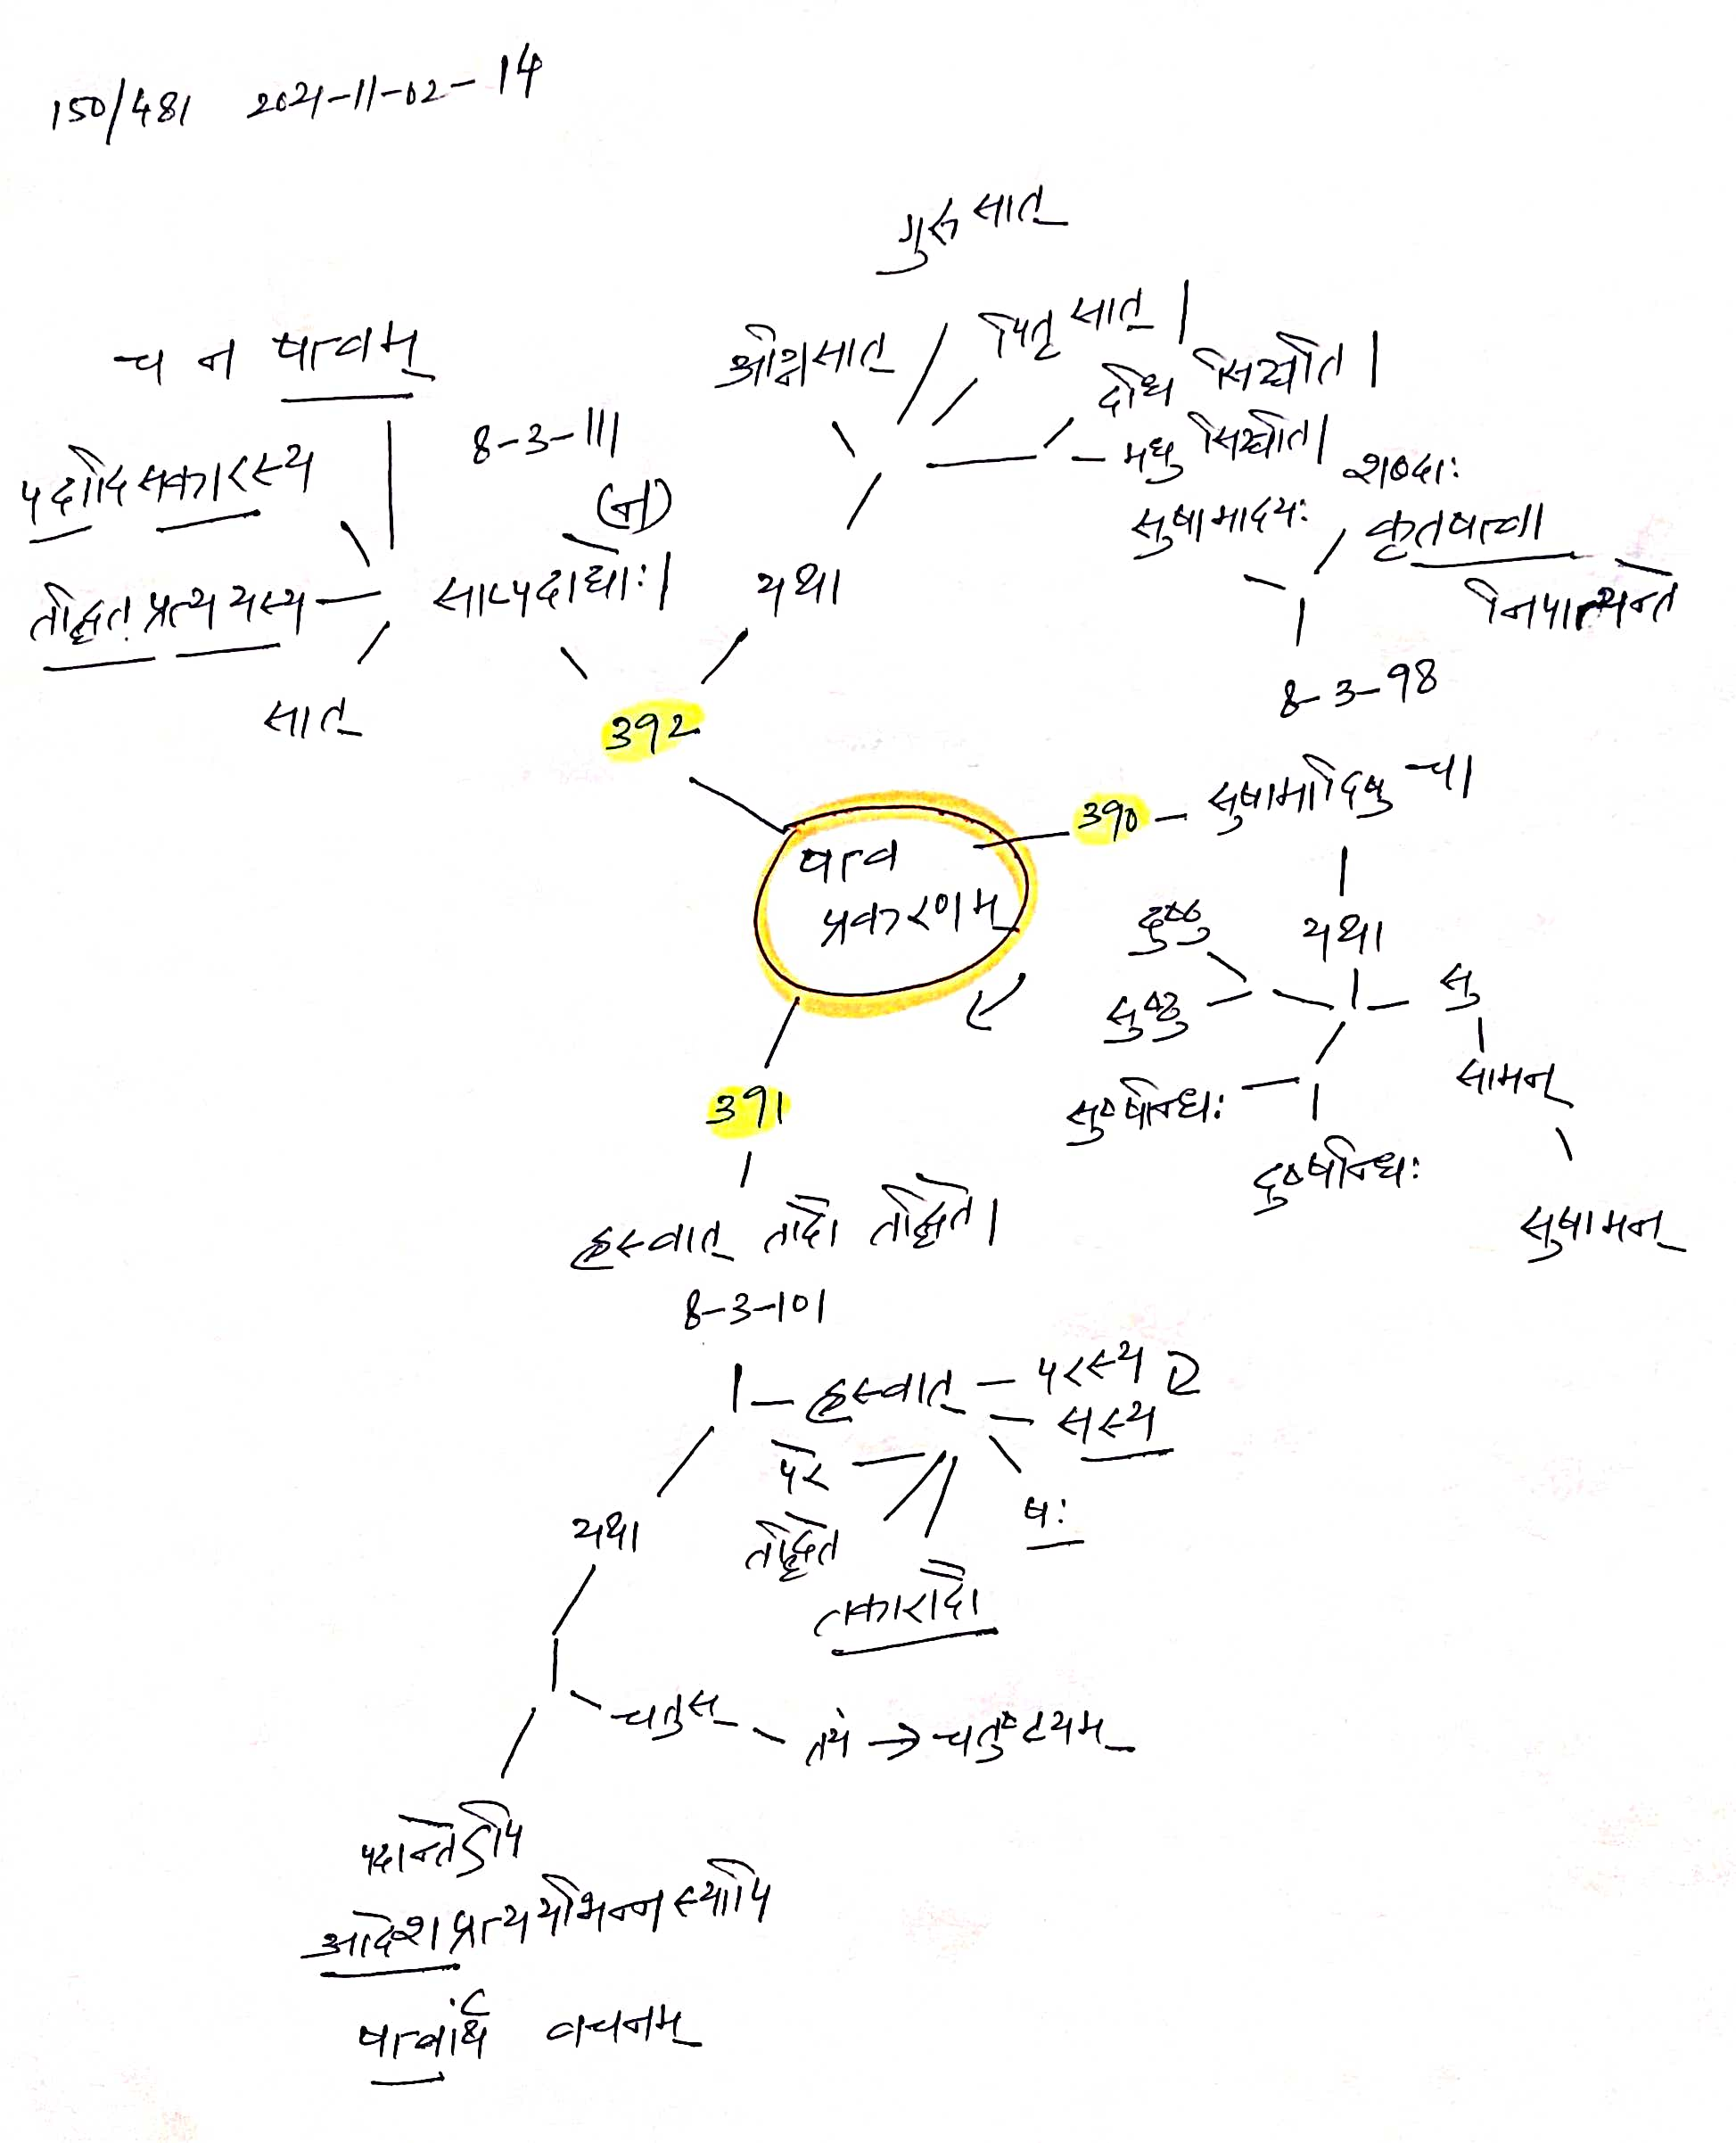 150/481 2021-11-02-14
गुरुसात्
अग्निसात्
पितृसात् |
दधि सिञ्चति |
मधु सिञ्चति |
च न षत्वम्
8-3-111
(न)
पदादि सकारस्य
तद्धित प्रत्ययस्य
सात्
सात्पदाद्योः |
यथा
392
शब्दाः
सुषामादयः
कृतषत्वा
निपात्यन्ते
8-3-98
390 – सुषामादिषु च |
षत्व
प्रकरणम्
यथा
दुष्ठु
सुष्ठु
सु
सामन्
सुषामन्
सुष्षन्धिः
दुष्षन्धिः
391
ह्रस्वात् तादौ तद्धिते |
8-3-101
ह्रस्वात् – परस्य
सस्य
षः
परे
तद्धिते
तकारादौ
यथा
चतुस् – तय → चतुष्टयम्
पदान्तेऽपि
आदेशप्रत्ययभिन्नस्यापि
षत्वार्थं वचनम्